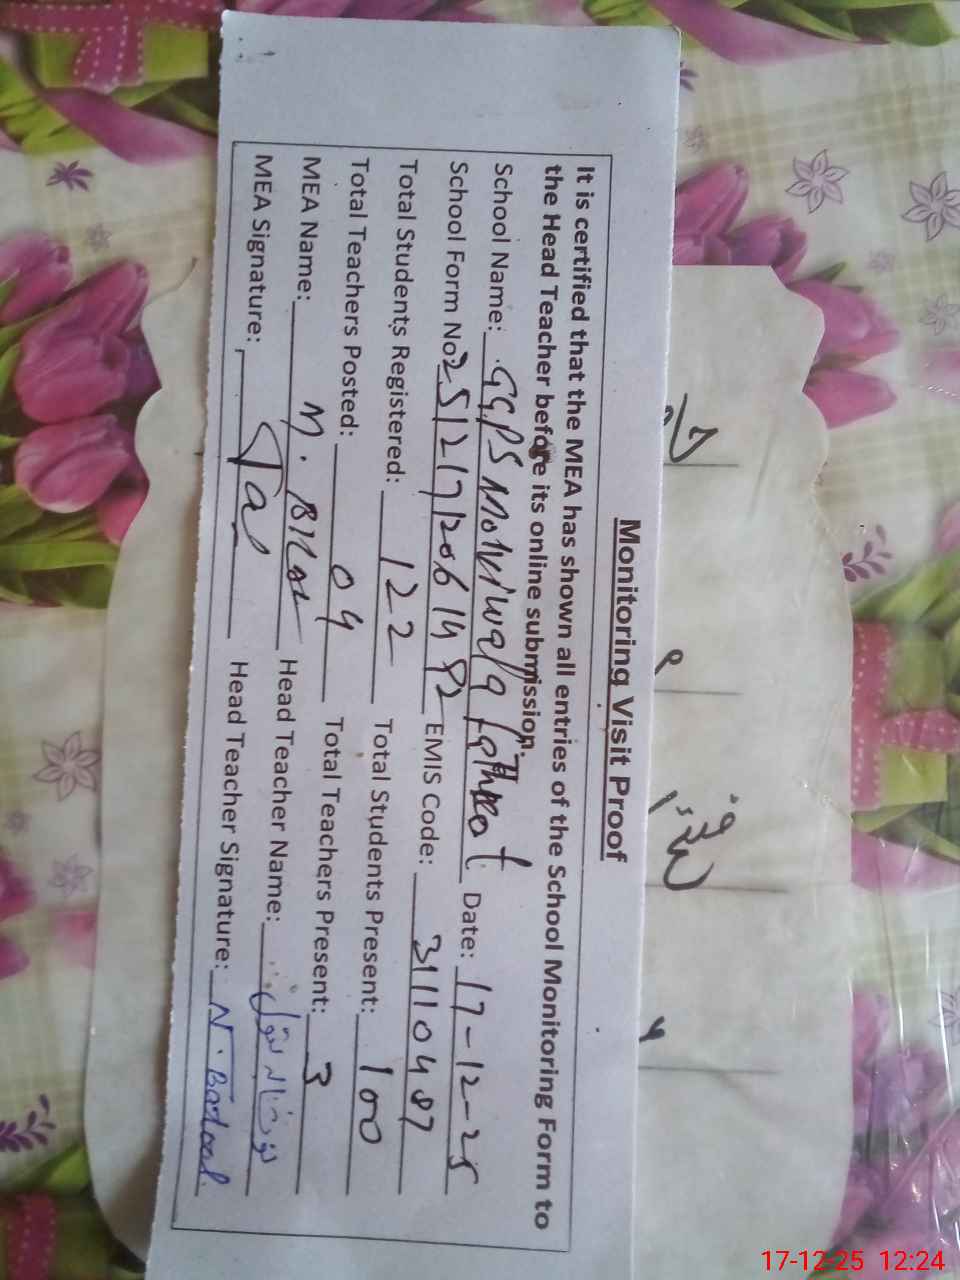 Monitoring Visit Proof
It is certified that the MEA has shown all entries of the School Monitoring Form to
the Head Teacher before its online submission.
School Name: GGPS Molviwala Date: 17-12-25
School Form No. 251217120614 92 EMIS Code: 31110487
Total Students Registered: 122 Total Students Present: 100
Total Teachers Posted: 04 Total Teachers Present: 3
MEA Name: M. Bilal Head Teacher Name:
MEA Signature: Head Teacher Signature: N. Batool
17-12-25 12:24